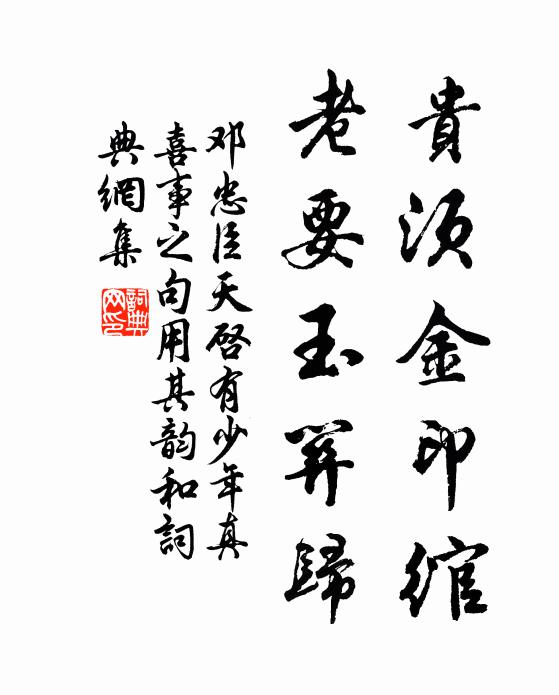 貴須金印綰
老要玉門歸
邓忠臣天启有少年真
喜事之句用其韵和詞
典網集
詞典网印